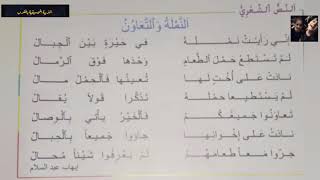 النَّصُّ الشِّعْرِيُّ
النَّمْلَةُ وَالتَّعَاوُنُ
إِنِّي رَأَيْتُ نَمْلَةً فِي حَيْرَةٍ بَيْنَ الْجِبَالْ
لَمْ تَسْتَطِعْ حَمْلَ الطَّعَامِ وَحْدَهَا فَوْقَ الرِّمَالْ
نَادَتْ عَلَى أُخْتٍ لَهَا تُعِينُهَا فَالْحِمْلُ مَالْ
لَمْ يَسْتَطِيعَا حَمْلَهُ تَذَكَّرَا قَوْلًا يُقَالْ
تَعَاوَنُوا جَمِيعُكُمْ فَالْخَيْرُ يَأْتِي بِالْوِصَالْ
نَادَتْ عَلَى إِخْوَانِهَا جَاؤُوا جَمِيعاً بِالْحِبَالْ
جَرُّوا مَعاً طَعَامَهُمْ لَمْ يَعْرِفُوا شَيْئاً مُحَالْ
إيهاب عبد السلام